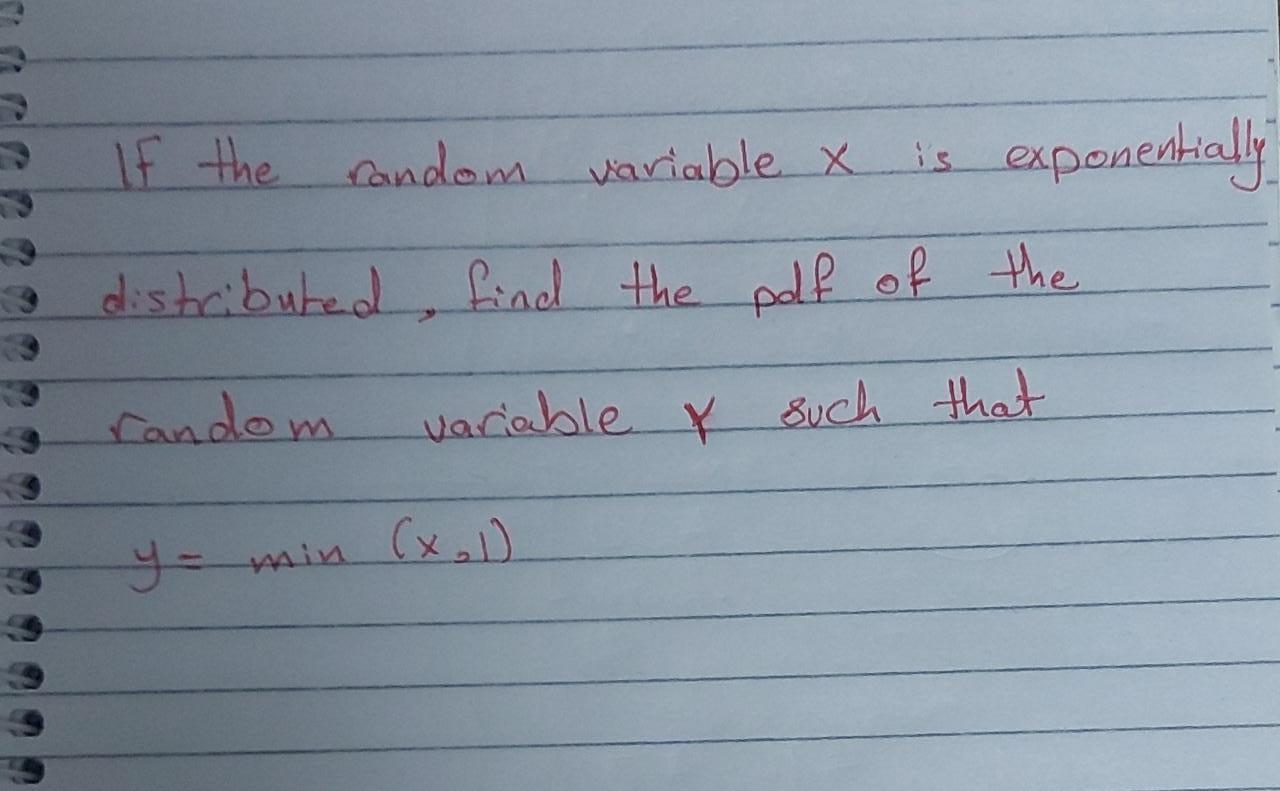 If the random variable X is exponentially
distributed, find the pdf of the
random variable Y such that
y = min (x,1)